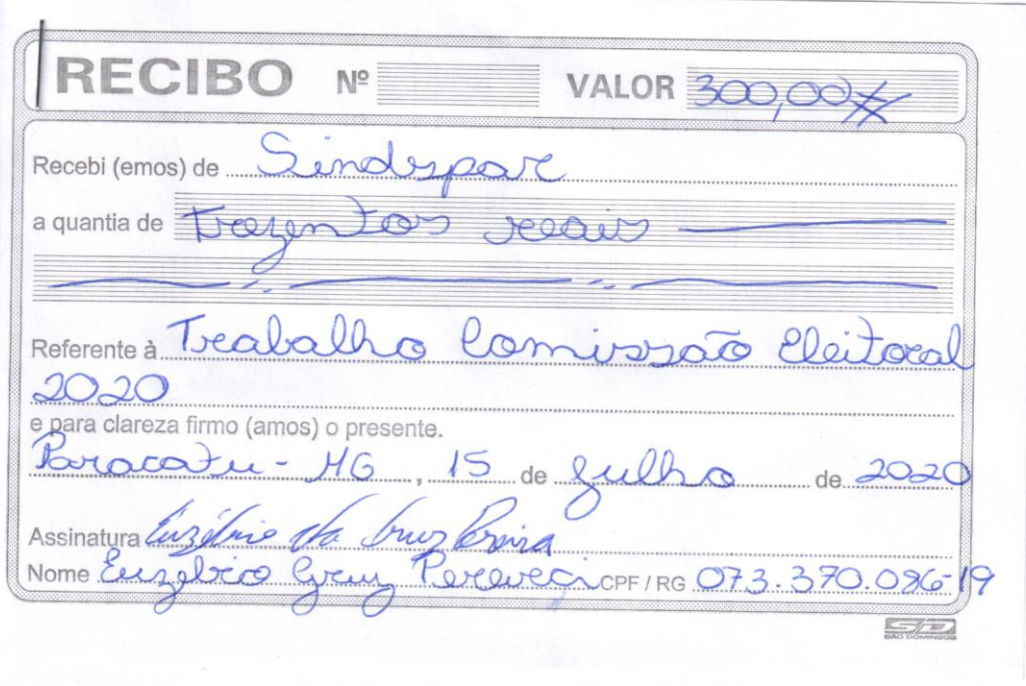 RECIBO Nº VALOR 300,00
Recebi (emos) de Sindspar
a quantia de Trezentos reais
Referente à Trabalho Comissão Eleitoral
2020
e para clareza firmo (amos) o presente.
Paracatu - MG , 15 de Julho de 2020
Assinatura Euzébio da Cruz Pereira
Nome Euzébio Cruz CPF / RG 073.370.086-19
SD
SÃO DOMINGOS